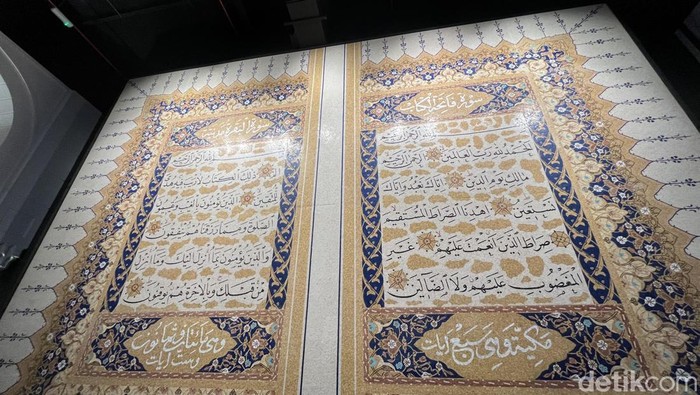 سورة فاتحة الكتاب
بسم الله الرحمن الرحيم
الحمد لله رب العالمين الرحمن الرحيم
مالك يوم الدين إياك نعبد وإياك
نستعين اهدنا الصراط المستقيم
صراط الذين أنعمت عليهم غير
المغضوب عليهم ولا الضالين
مكية وهي سبع آيات
سورة البقرة مدنية
بسم الله الرحمن الرحيم
الم ذلك الكتاب لا ريب فيه هدى
للمتقين الذين يؤمنون بالغيب ويقيمون
الصلوة ومما رزقناهم ينفقون
والذين يؤمنون بما أنزل إليك وما أنزل
من قبلك وبالآخرة هم يوقنون
وهي مائتان وثمانون
وست آيات
detikcom